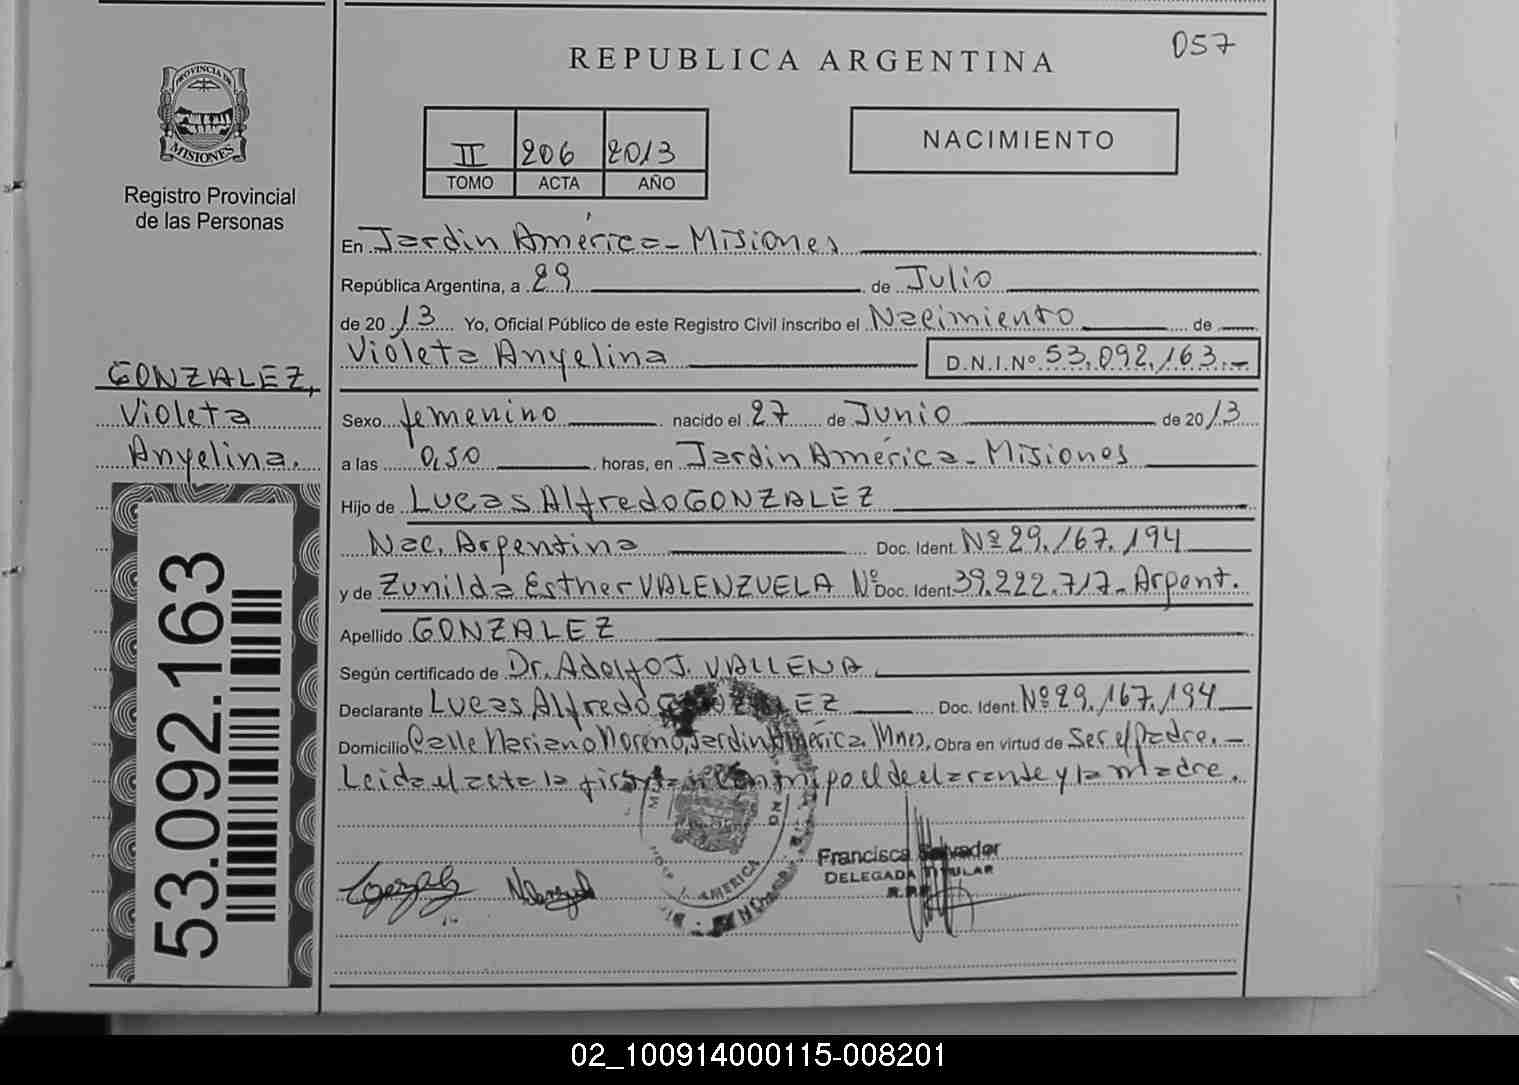 057
REPUBLICA ARGENTINA
PROVINCIA DE
MISIONES
Registro Provincial
de las Personas
II 206 2013
TOMO ACTA AÑO
NACIMIENTO
En Jardin América - Misiones
República Argentina, a 29 de Julio
de 2013 Yo, Oficial Público de este Registro Civil inscribo el Nacimiento de
Violeta Anyelina D.N.I.Nº 53.092.163.-
GONZALEZ,
Violeta
Anyelina.
Sexo femenino nacido el 27 de Junio de 2013
a las 0,50 horas, en Jardin América - Misiones
Hijo de Lucas Alfredo GONZALEZ
Nac. Argentina Doc. Ident. Nº 29.167.194
y de Zunilda Esther VALENZUELA Nº Doc. Ident. 39.222.717- Argent.
Apellido GONZALEZ
Según certificado de Dr. Adolfo J. VALLENA
Declarante Lucas Alfredo GONZALEZ Doc. Ident. Nº 29.167.194
Domicilio Calle Mariano Moreno, Jardin América, Mnes, Obra en virtud de Ser el padre. -
Leida el acta la firman conmigo el declarante y la madre.
53.092.163
AMERICA
Francisca Salvador
DELEGADA TITULAR
02_100914000115-008201